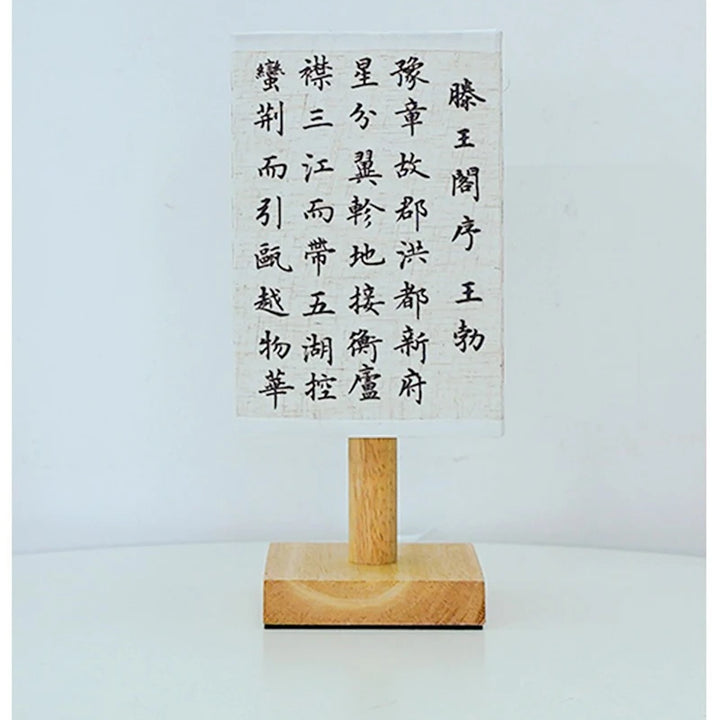 滕王閣序 王勃
豫章故郡洪都新府
星分翼軫地接衡廬
襟三江而帶五湖控
蠻荆而引甌越物華